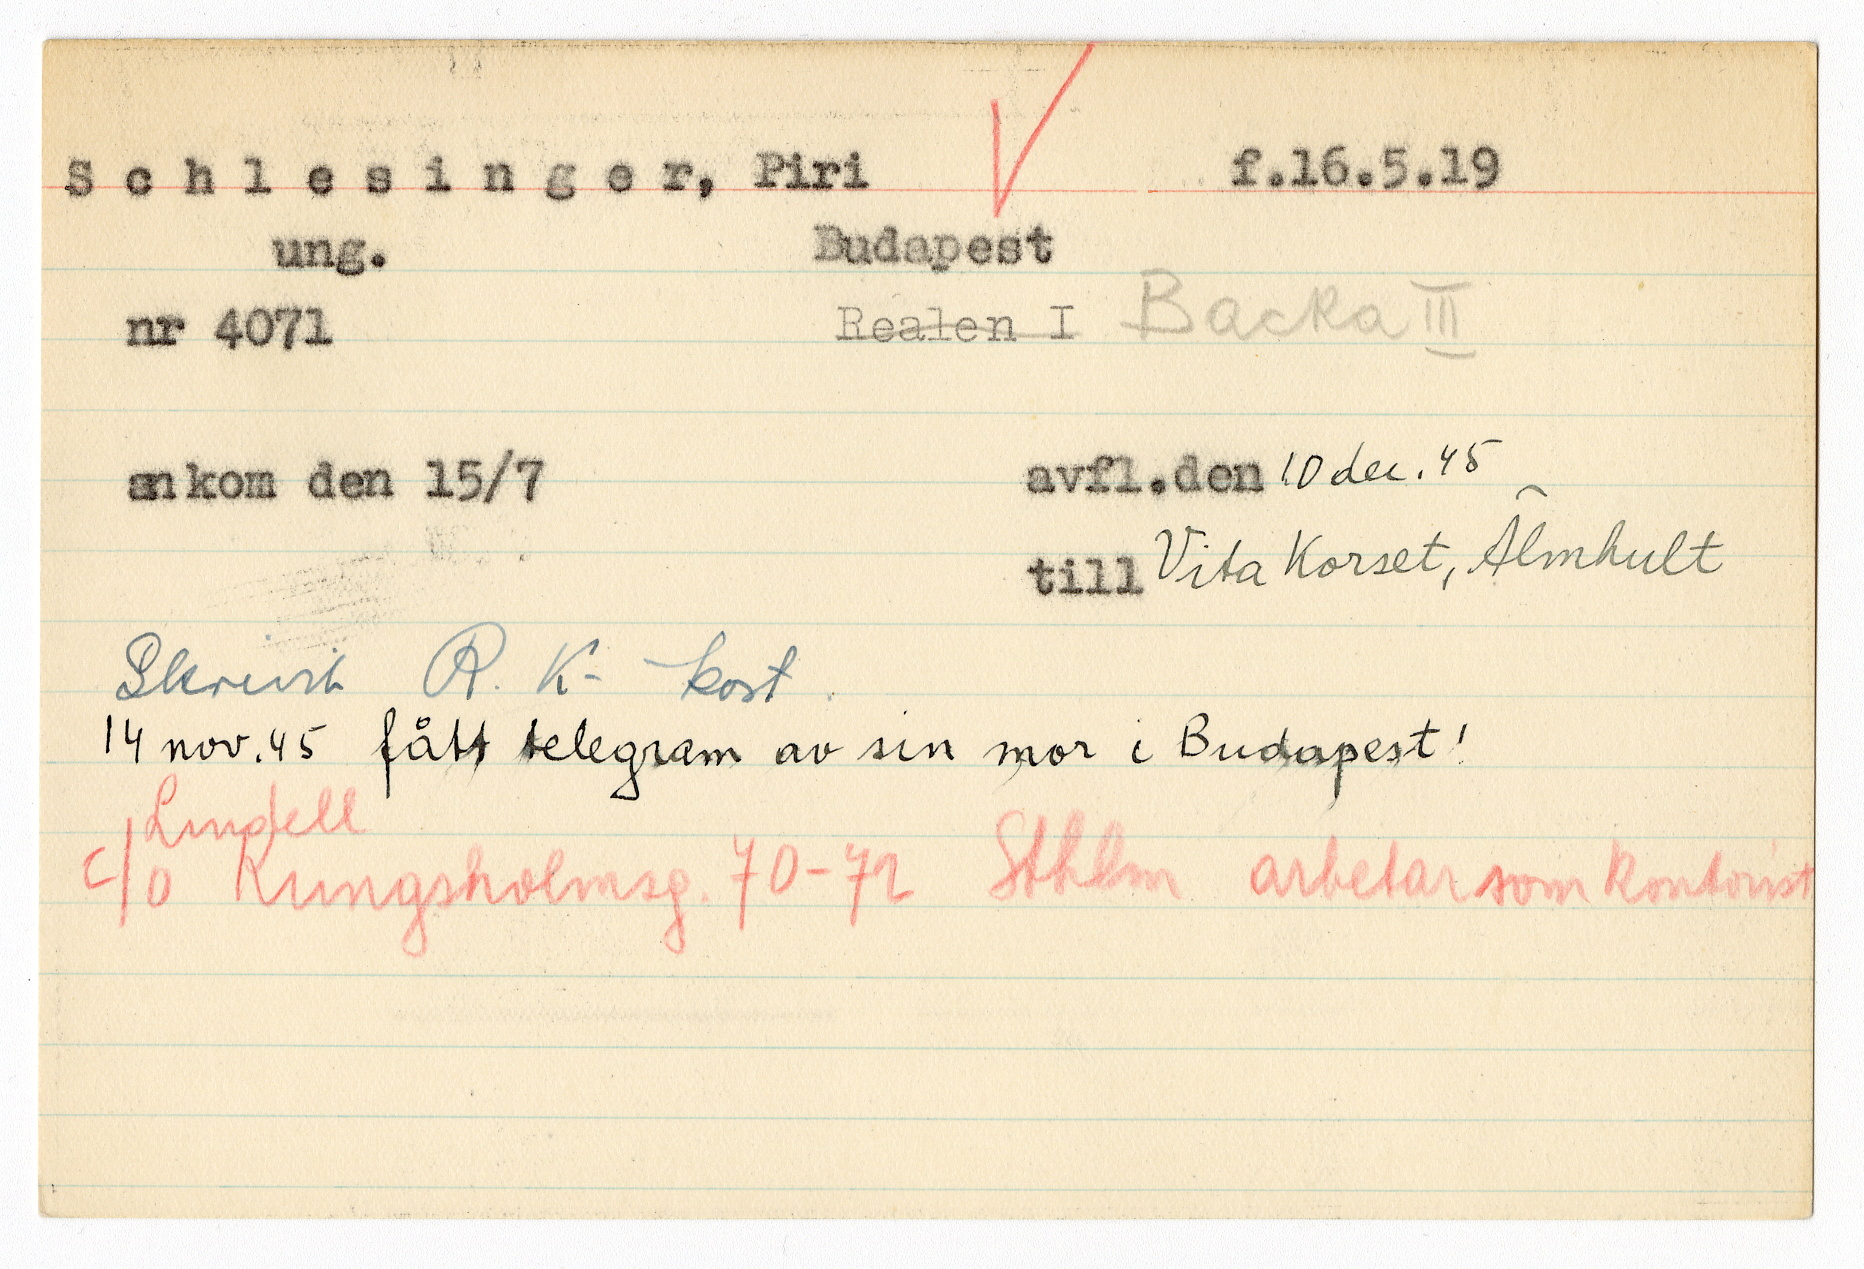 Schlesinger, Piri f.16.5.19
ung. Budapest
nr 4071 Realen I Backa III
ankom den 15/7 avfl.den 10 dec. 45
till Vita Korset, Älmhult
Skrivit R. K- kost.
14 nov. 45 fått telegram av sin mor i Budapest!
Lindell
c/o Kungsholmsg. 70-72 Sthlm arbetar som kontorist